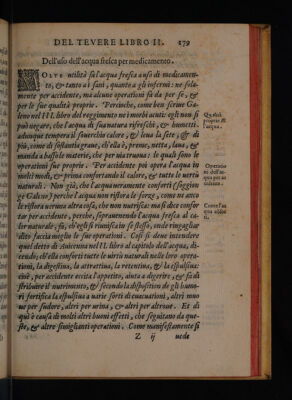 DEL TEVERE LIBRO II. 179
Dell'uso dell'acqua fresca per medicamento.
MOLTE utilità fa l'acqua fresca a uso di medicamen-
to, & tanto a i sani, quanto a gli infermi: ne sola-
mente per accidente, ma alcune operationi fa da per se, &
per le sue qualità proprie. Percioche, come ben scrive Ga-
leno nel III. libro del reggimento ne i morbi acuti: egli non si
può negare, che l'acqua di sua natura rifreschi, & humetti.
adunque tempera il soverchio calore, & leva la sete, & di
più, come di sostantia grave, ch'ella è, preme, netta, lava, &
manda a basso le materie, che per via truova: le quali sono le
operationi sue proprie. Per accidente poi opera l'acqua in
molti modi, & prima confortando il calore, & tutte le virtù
naturali. Non già, che l'acqua veramente conforti (soggion
ge Galeno) perche l'acqua non ristora le forze, come ne anco
le ristora
che non nutrisca: ma si dice confor
tar per accidente, perche, sopravenendo l'acqua fresca al ca-
lor naturale, fa, ch'egli si riunisca in se stesso, onde ringagliar
dito faccia meglio le sue operationi. Così si deve intendere
quel detto di Avicenna nel II. libro al capitolo dell'acqua, di-
cendo; ch'ella conforti tutte le virtù naturali nelle loro opera-
tioni, la digestiva, la attrattiva, la retentiva, & la espulsiva:
cioè, per accidente eccita l'appetito, aiuta a digerire, & fa di
stribuire il nutrimento, & secondo la disposition de gli humo-
ri fortifica la espulsiva a varie sorti di evacuationi, altri muo
ve per sudore, altri per urina, & altri per da basso. Et di
quì è causa di molti altri buoni effetti, che seguitano da que-
ste, & altre simiglianti operationi. Come manifestamente si
Z ij vede
Qualità
proprie de
l'acqua.
Operatio
ni dell'ac-
qua per ac
cidente.